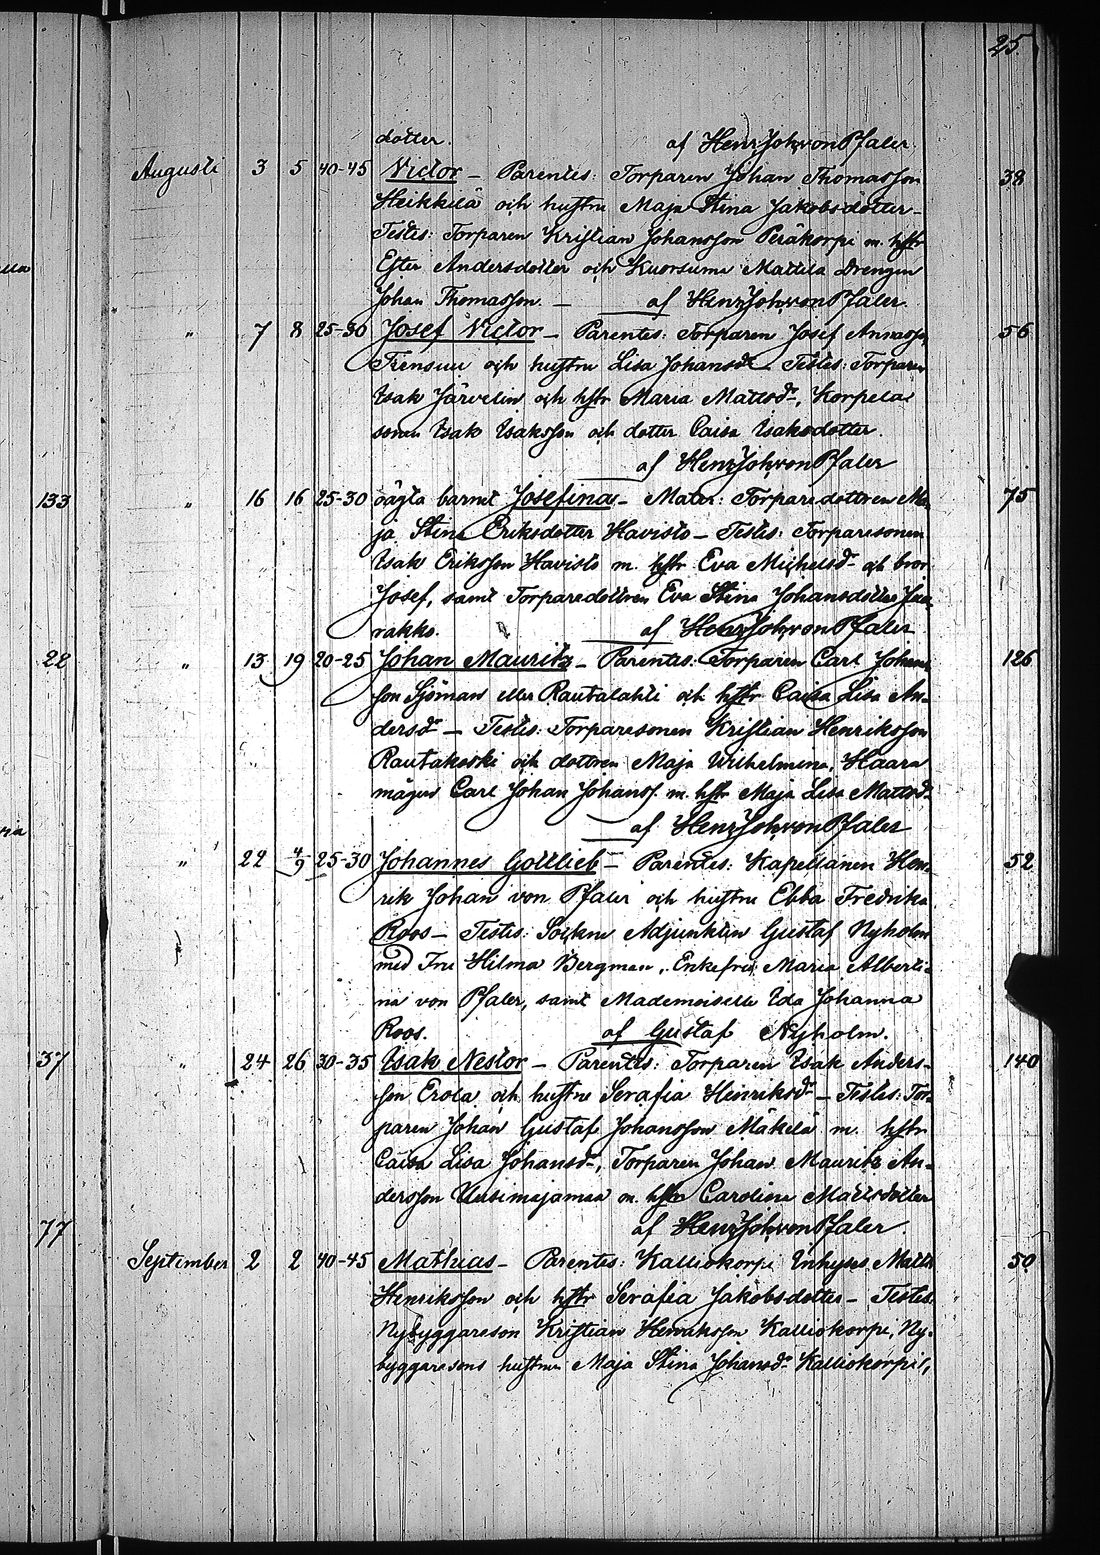 25
dotter. af Henr Joh von Pfaler.
Augusti 3 5 40-45 Victor — Parentes: Torparen Johan Thomasson 38
Heikkilä och hustru Maja Stina Jakobsdotter —
Testes: Torparen Kristian Johansson Peräkorpi m. hstr
Ester Andersdotter och Kuorsuma Mattila Drengen
Johan Thomasson. — af Henr Joh von Pfaler.
" 7 8 25-30 Josef Victor — Parentes: Torparen Josef 56
och hustru Lisa Johansdr Testes: Torparen
Isak Järvelin och hstr Maria Mattsdr, Korpela
sonen Isak Isaksson och dotter Caisa Isaksdotter.
af Henr Joh von Pfaler
133 " 16 16 25-30 oägta barnet Josefina — Mater: Torparedottren Ma- 75
ja Stina Eriksdotter Havisto — Testes: Torparesonen
Isak Eriksson Havisto m. hstr Eva Michelsdr och bror
Josef, samt Torparedottren Eva Stina Johansdotter Jaa-
rakko. af Henr Joh von Pfaler
22 " 13 19 20-25 Johan Mauritz — Parentes: Torparen Carl Johans- 126
son Sjöman eller Rautalahti och hstr Caisa Lisa An-
dersdr — Testes: Torparesonen Kristian Henriksson
Rautakoski och dottren Maja Wilhelmina, Haara
mågen Carl Johan Johanss. m. hstr Maja Lisa Mattsdr
af Henr Joh von Pfaler
" 22 4/9 25-30 Johannes Gottlieb — Parentes: Kapellanen Hen- 52
rik Johan von Pfaler och hustru Ebba Fredrika
Roos — Testes: Sockne Adjunkten Gustaf Nyholm
med Fru Hilma Bergman, Enkefru Maria Alberti-
na von Pfaler, samt Mademoiselle Ida Johanna
Roos. af Gustaf Nyholm.
37 " 24 26 30-35 Isak Nestor — Parentes: Torparen Isak Anders- 140
son Erola och hustru Serafia Henriksdr — Testes: Tor-
paren Johan Gustaf Johansson Mäkelä m. hstr
Caisa Lisa Johansdr, Torparen Johan Mauritz An-
dersson Uusimajamaa m. hstr Carolina Mattsdotter
77 af Henr Joh von Pfaler.
September 2 2 40-45 Mathias — Parentes: Kalliokorpi Inhyses Matts 50
Henriksson och hstr Serafia Jakobsdotter — Testes:
Nybyggareson Kristian Henriksson Kalliokorpi, Ny-
byggaresons hustru Maja Stina Johansdr Kalliokorpi,